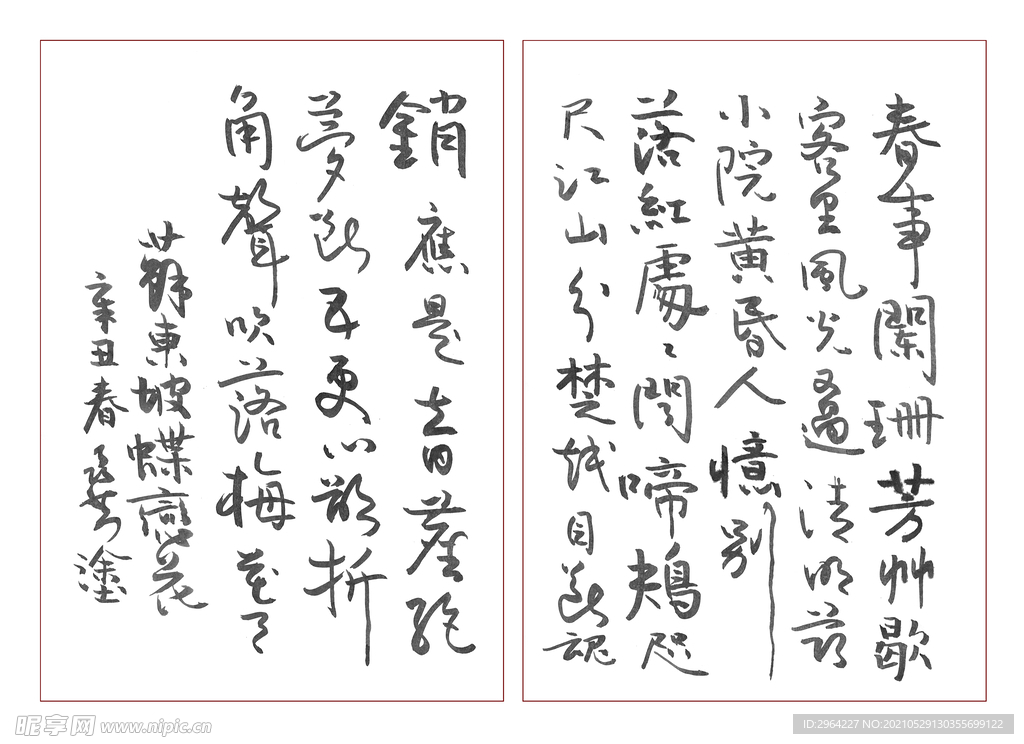 春事闌珊芳艸歇
客里風光又過清明節
小院黃昏人憶別
落紅處〻聞啼鴂咫
尺江山分楚越目斷魂
銷應是音塵絕
夢斷五更心欲折
角聲吹落梅花月
蘇東坡蝶戀花
辛丑春塗
昵享网 www.nipic.cn
ID:2964227 NO:20210529130355699122